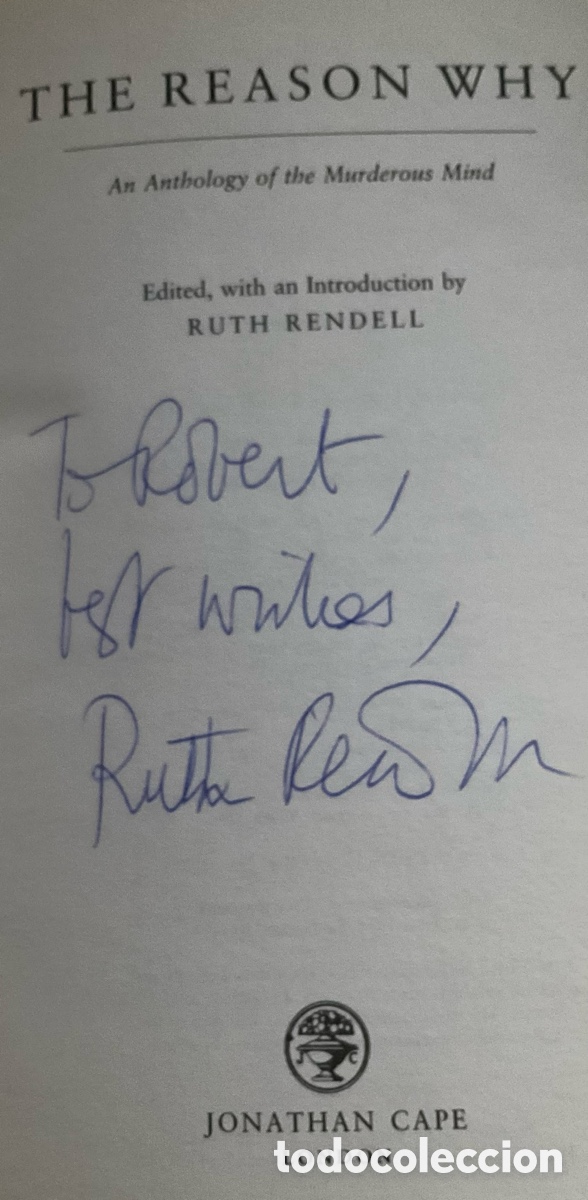 THE REASON WHY
An Anthology of the Murderous Mind
Edited, with an Introduction by
RUTH RENDELL
To Robert,
best wishes,
Ruth Rendell
JONATHAN CAPE
todocoleccion